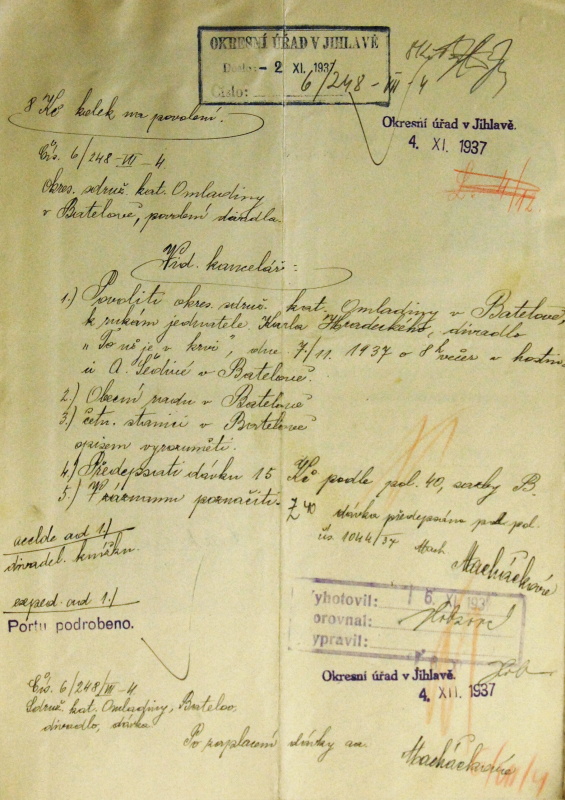 OKRESNÍ ÚŘAD V JIHLAVĚ
Došlo: - 2 XI. 1937
Číslo: 6/248-VIII-4
Okresní úřad v Jihlavě.
4. XI. 1937
8 Kč kolek na povolení.
Čís. 6/248-VIII-4.
Okres. sdruž. kat. Omladiny
v Batelově, povolení divadla.
Vid. kancelář:
1.) Povoliti okres. sdruž. kat. Omladiny v Batelově,
k rukám jednatele Karla Hradeckého, divadlo
„To už je v krvi", dne 7./11. 1937 o 8 h večer v hostin.
u A. Šediné v Batelově.
2.) Obecní radu v Batelově
3.) četn. stanici v Batelově
opisem vyrozuměti.
4.) Předepsati dávku 15 Kč podle pol. 40, sazby B.
5.) V záznamu poznačiti.
ž 40 dávka předepsána pod pol.
čís. 1044/37
Macháčková
acclde ad 1.)
divadel. knížku.
exped. ad 1.)
Portu podrobeno.
yhotovil: 6. XI. 1937
orovnal:
ypravil:
Okresní úřad v Jihlavě.
4. XII. 1937
Čís. 6/248/VIII-4.
Sdruž. kat. Omladiny, Batelov,
divadlo, dávka
Po zaplacení dávky aa.
Macháčková